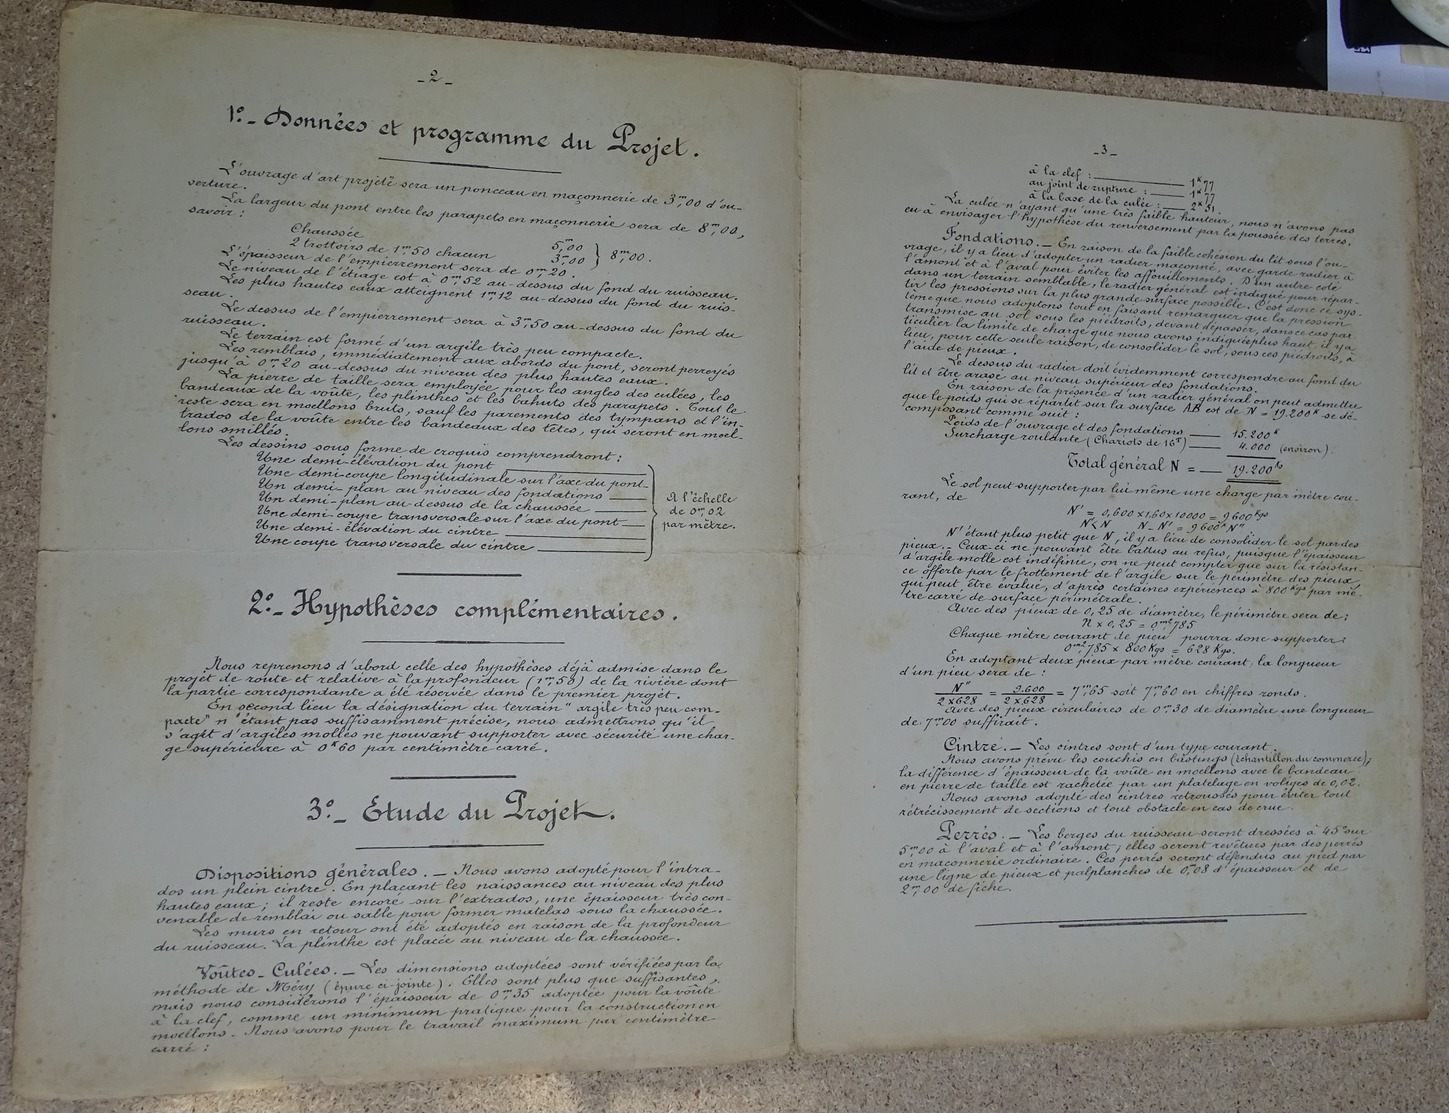 _2_
1º_ Données et programme du Projet.
L'ouvrage d'art projeté sera un ponceau en maçonnerie de 3m,00 d'ou-
verture.
La largeur du pont entre les parapets en maçonnerie sera de 8m,00,
savoir :
Chaussée 5m,00
2 trottoirs de 1m,50 chacun 3m,00 } 8m,00.
L'épaisseur de l'empierrement sera de 0m,20.
Le niveau de l'étiage est à 0m,52 au-dessus du fond du ruisseau.
Les plus hautes eaux atteignent 1m,12 au-dessus du fond du ruis-
seau.
Le dessus de l'empierrement sera à 3m,50 au-dessus du fond du
ruisseau.
Le terrain est formé d'un argile très peu compacte.
Les remblais, immédiatement aux abords du pont, seront perreyés
jusqu'à 0m,20 au-dessus du niveau des plus hautes eaux.
La pierre de taille sera employée pour les angles des culées, les
bandeaux de la voûte, les plinthes et les bahuts des parapets. Tout le
reste sera en moellons bruts, sauf les parements des tympans et l'in-
trados de la voûte entre les bandeaux des têtes, qui seront en moel-
lons smillés.
Les dessins sous forme de croquis comprendront :
Une demi-élévation du pont
Une demi-coupe longitudinale sur l'axe du pont
Un demi-plan au niveau des fondations
Un demi-plan au-dessus de la chaussée
Une demi-coupe transversale sur l'axe du pont
Une demi-élévation du cintre
Une coupe transversale du cintre
A l'échelle
de 0m,02
par mètre.
2º_ Hypothèses complémentaires.
Nous reprenons d'abord celle des hypothèses déjà admise dans le
projet de route et relative à la profondeur (1m,50) de la rivière dont
la partie correspondante a été réservée dans le premier projet.
En second lieu la désignation du terrain "argile très peu com-
pacte" n'étant pas suffisamment précise, nous admettrons qu'il
s'agit d'argiles molles ne pouvant supporter avec sécurité une char-
ge supérieure à 0k60 par centimètre carré.
3º_ Etude du Projet.
Dispositions générales. _ Nous avons adopté pour l'intra-
dos un plein cintre. En plaçant les naissances au niveau des plus
hautes eaux ; il reste encore sur l'extrados, une épaisseur très con-
venable de remblai ou sable pour former matelas sous la chaussée.
Les murs en retour ont été adoptés en raison de la profondeur
du ruisseau. La plinthe est placée au niveau de la chaussée.
Voûtes_Culées. _ Les dimensions adoptées sont vérifiées par la
méthode de Méry (épure ci-jointe). Elles sont plus que suffisantes,
mais nous considérons l'épaisseur de 0m,35 adoptée pour la voûte
à la clef, comme un minimum pratique pour la construction en
moellons. Nous avons pour le travail maximum par centimètre
carré :
_3_
à la clef : 1k77
au joint de rupture : 1k77
à la base de la culée : 2k51
La culée n'ayant qu'une très faible hauteur, nous n'avons pas
eu à envisager l'hypothèse du renversement par la poussée des terres.
Fondations. _ En raison de la faible cohésion du lit sous l'ou-
vrage, il y a lieu d'adopter un radier maçonné, avec garde radier à
l'amont et à l'aval pour éviter les affouillements. D'un autre côté
dans un terrain semblable, le radier général est indiqué pour répar-
tir les pressions sur la plus grande surface possible. C'est donc ce sys-
tème que nous adoptons tout en faisant remarquer que la pression
transmise au sol sous les piédroits, devant dépasser, dans ce cas par
ticulier la limite de charge que nous avons indiquée plus haut il y a
lieu, pour cette seule raison, de consolider le sol, sous ces piédroits, à
l'aide de pieux.
Le dessus du radier doit évidemment correspondre au fond du
lit et être arasé au niveau supérieur des fondations.
En raison de la présence d'un radier général on peut admettre
que le poids qui se répartit sur la surface AB est de N = 19.200k se dé-
composant comme suit :
Poids de l'ouvrage et des fondations 15.200k
Surcharge roulante (Chariots de 16T) 4.000 (environ).
Total général N = 19.200ks
Le sol peut supporter par lui même une charge par mètre cou-
rant, de
N' = 0,600 x 1,60 x 10000 = 9600kgs
N'<N N_N' = 9600k N"
N' étant plus petit que N, il y a lieu de consolider le sol par des
pieux. Ceux-ci ne pouvant être battus au refus, puisque l'épaisseur
d'argile molle est indéfinie, on ne peut compter que sur la résistan-
ce offerte par le frottement de l'argile sur le périmètre des pieux,
qui peut être évalué, d'après certaines expériences à 800kgs par mè-
tre carré de surface périmétrale.
Avec des pieux de 0,25 de diamètre, le périmètre sera de :
π x 0,25 = 0m2785
Chaque mètre courant de pieu pourra donc supporter :
0m2785 x 800 Kgs = 628 Kgs.
En adoptant deux pieux par mètre courant, la longueur
d'un pieu sera de :
N"/2x628 = 9.600/2x628 = 7m,65 soit 7m,60 en chiffres ronds.
Avec des pieux circulaires de 0m,30 de diamètre une longueur
de 7m,00 suffirait.
Cintre. _ Les cintres sont d'un type courant.
Nous avons prévu les couchis en bastings (échantillon du commerce);
la différence d'épaisseur de la voûte en moellons avec le bandeau
en pierre de taille est rachetée par un platelage en voliges de 0,02.
Nous avons adopté des cintres retroussés pour éviter tout
rétrécissement de sections et tout obstacle en cas de crue.
Perrés. _ Les berges du ruisseau seront dressées à 45° sur
5m,00 à l'aval et à l'amont ; elles seront revêtues par des perrés
en maçonnerie ordinaire. Ces perrés seront défendus au pied par
une ligne de pieux et palplanches de 0,08 d'épaisseur et de
2m,00 de fiche.